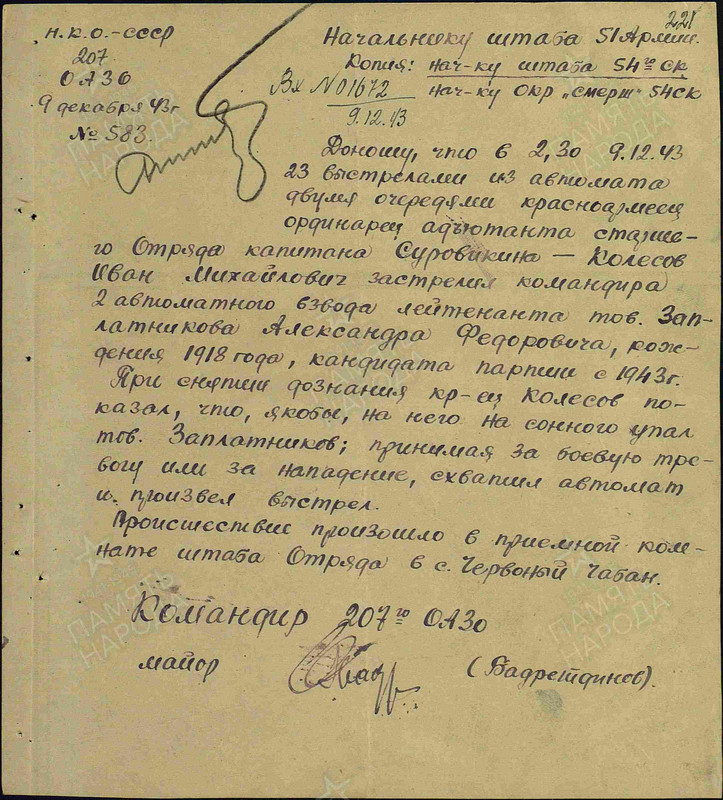 221
Н.К.О.-СССР
207
ОАЗО
9 декабря 43г
№ 583.
Начальнику штаба 51 Армии.
Копия: нач-ку штаба 54го СК
нач-ку ОКР "Смерш" 54СК
Вх N 01672
9.12.43
Доношу, что в 2,30 9.12.43
23 выстрелами из автомата
двумя очередями красноармеец
ординарец адъютанта старше-
го Отряда капитана Суровикина — Колесов
Иван Михайлович застрелил командира
2 автоматного взвода лейтенанта тов. Зап-
латникова Александра Федоровича, рож-
дения 1918 года, кандидата партии с 1943г.
При снятии дознания кр-ец Колесов по-
казал, что, якобы, на него на сонного упал
тов. Заплатников; принимая за боевую тре-
вогу или за нападение, схватил автомат
и произвел выстрел.
Происшествие произошло в приемной ком-
нате штаба Отряда в с. Червоный Чабан.
Командир 207го ОАЗо
майор (Бадретдинов).
ПАМЯТЬ НАРОДА
ПАМЯТЬ НАРОДА
ПАМЯТЬ НАРОДА
ПАМЯТЬ НАРОДА